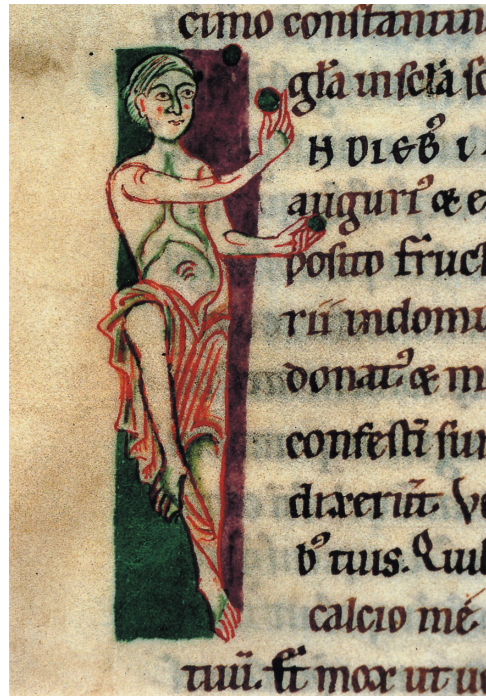 cimo constantin
gl̄a in scl̄a sc
N DIEBꝰ I
auguriꝰ & e
posito fruct
rii indomu
donatꝰ & m
confesti̅ sur
dixeru̅t Ve
bꝰ tuis. Quu
calcio me
tuu̅. & mox ut u